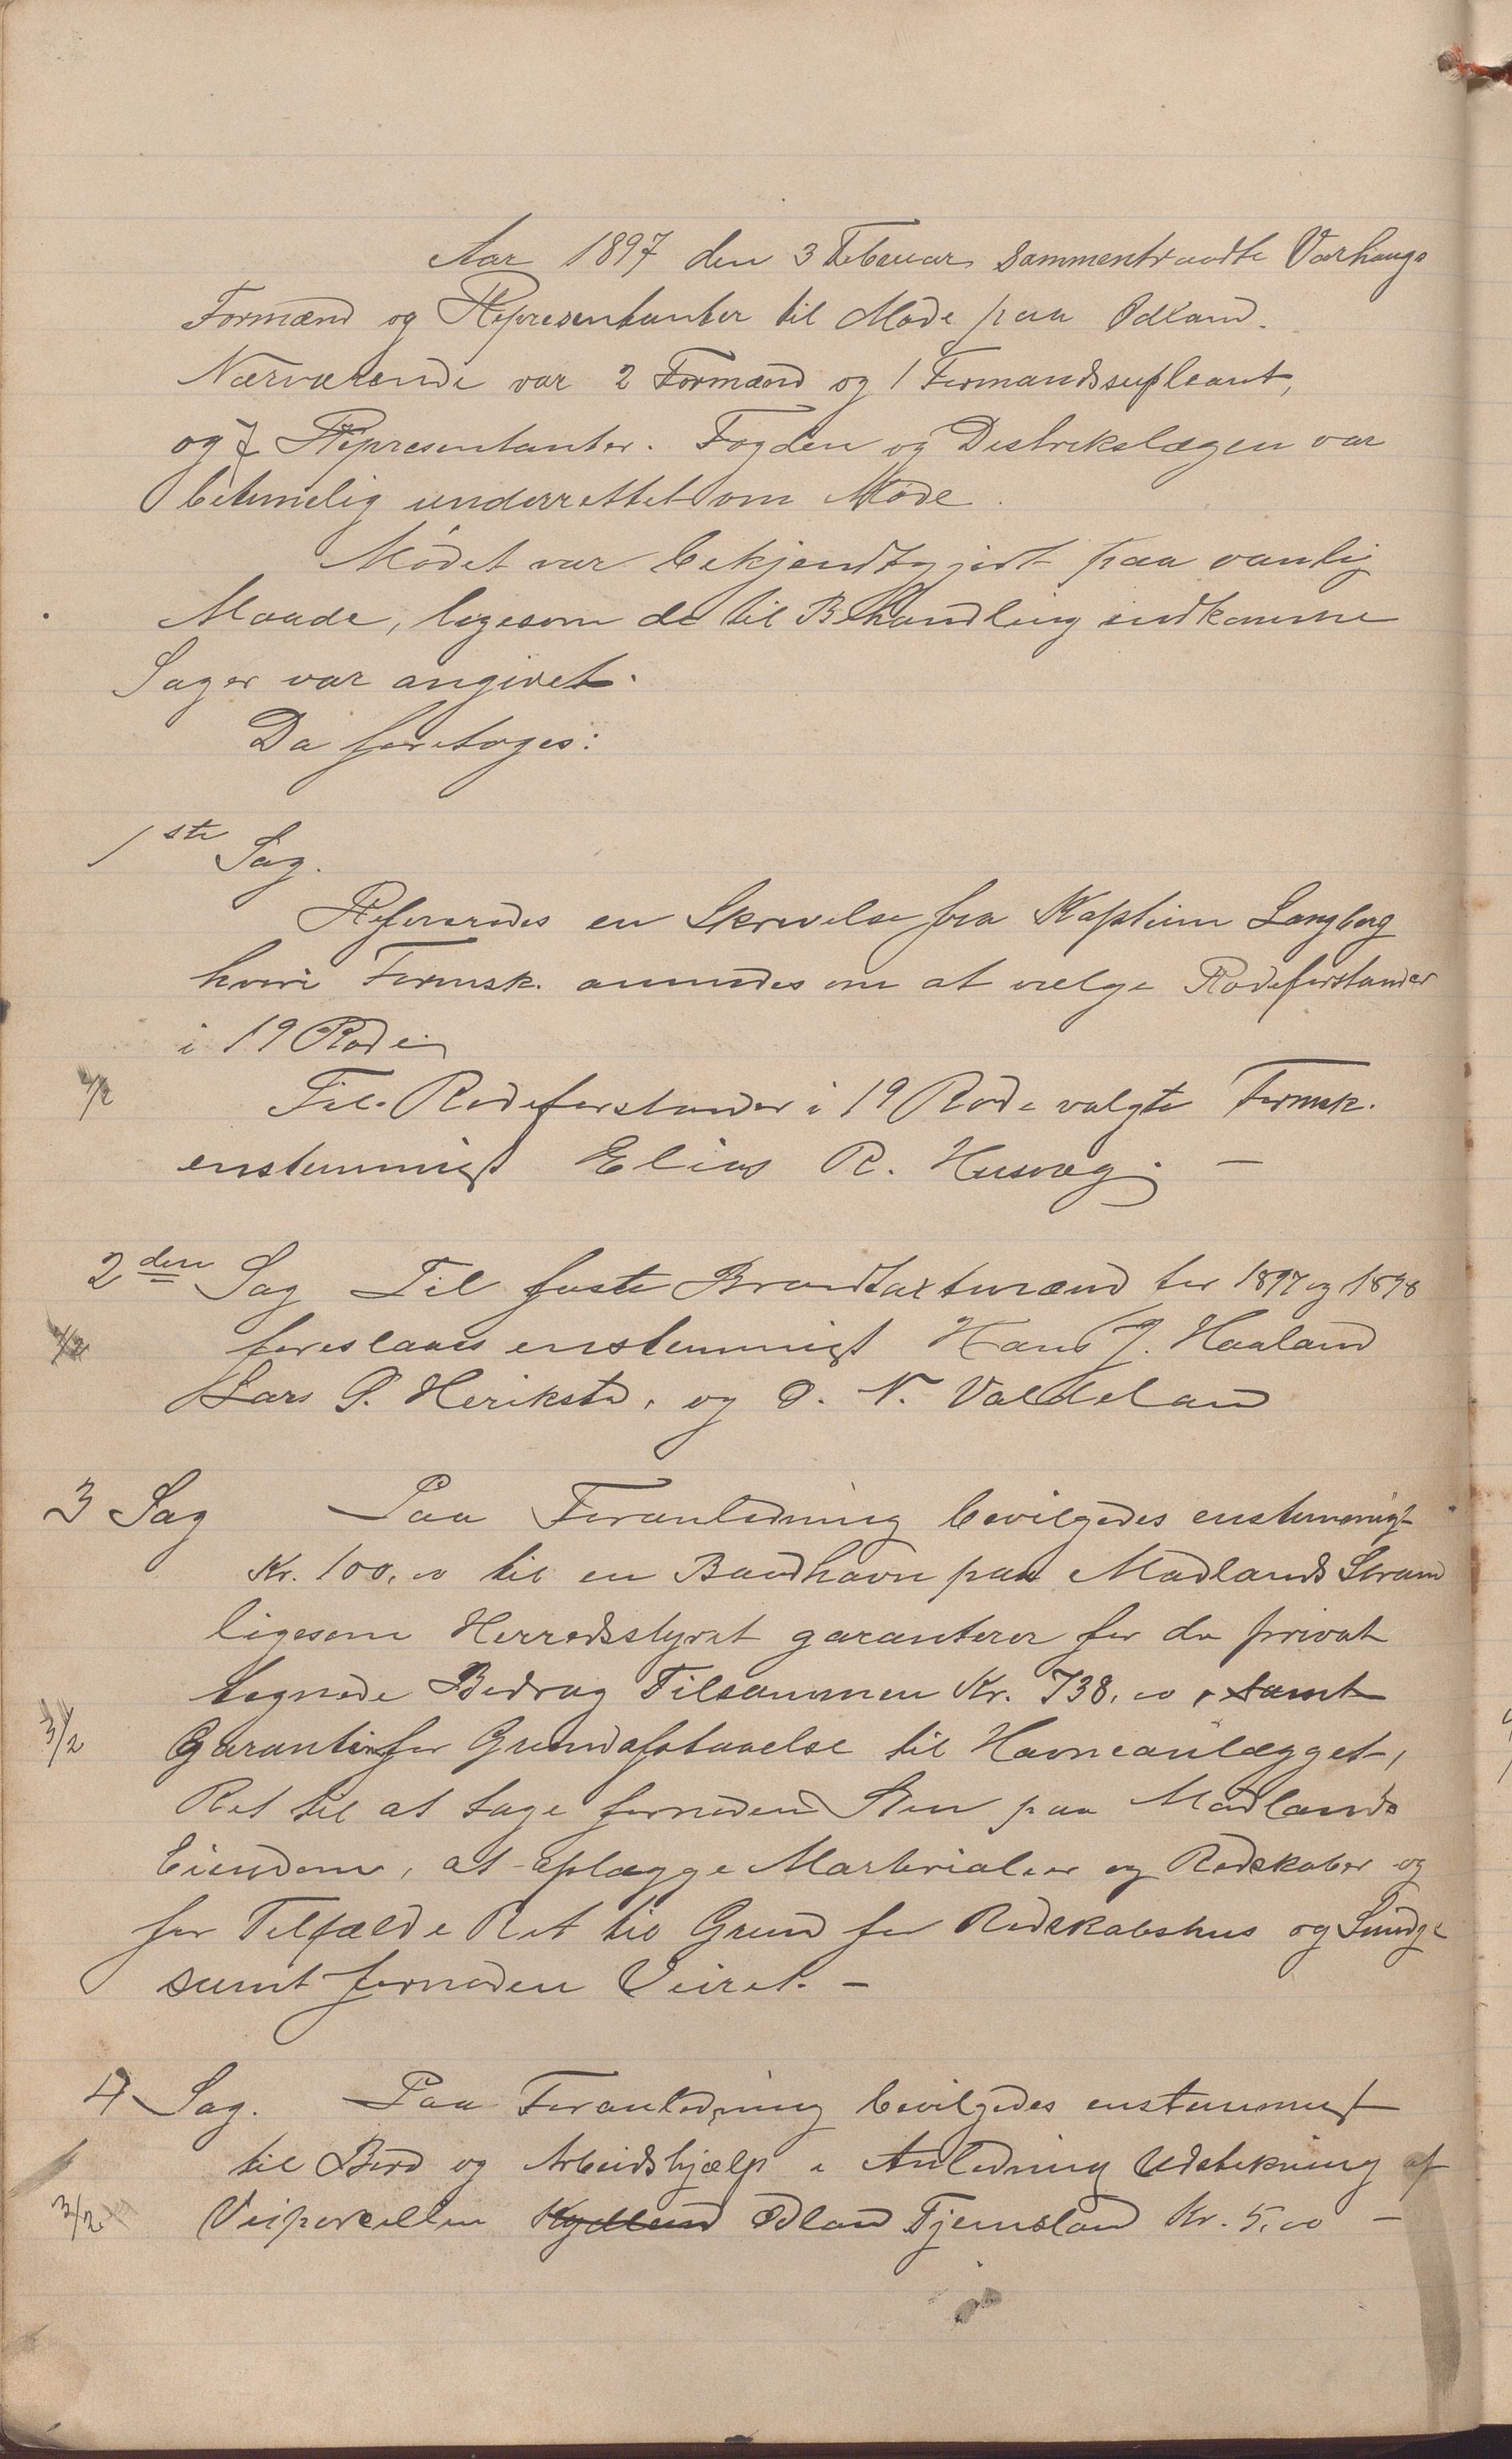 Aar 1897 den 3 Februar sammentraadte Varhaugs
Formænd og Repræsentanter til Møde paa Ødland.
Nærværende var 2 Formænd og 1 Formandssupleant,
og 7 Representanter. Fogden og Destrikslægen var
betimelig underrettet om Møde.
Mødet var bekjendtgjort paa vanlig
Maade, ligesom de til Behandling indkomne
Sager var angivet.
Da foretoges:
1ste Sag.
Refereredes en Skrivelse fra Kaptein Langberg
hvori Formsk. anmodes om at vælge Rodeforstander
i 19 Rode
4/2
Til Rodeforstander i 19 Rode valgte Formsk.
enstemmigt Elias R. Husvæg. —
2den Sag Til faste Brandtaxtmænd for 1897 og 1898
4/2
foreslaaes enstemmigt Hans J. Haaland
Lars P. Herikstd. og O. N. Valdeland
3 Sag Paa Foranledning bevilgedes enstemmigt
Kr. 100,00 til en Baadhavn paa Madlands Strand
ligesom Herredsstyret garanterer for de privat
tegnede Bedrag Tilsammen Kr. 738,00, samt
3/2
Garantier for Grundafstaaelse til Havneanlægget,
Ret til at tage fornøden Sten paa Madlands
Eiendom, at oplægge Marterialier og Redskaber og
for Tilfælde Ret til Grund for Redskabshus og Smidje
samt fornøden Veiret. —
4 Sag. Paa Foranledning bevilgedes enstemmigt
til Bord og Arbeidshjælp i Anledning Udstikning af
3/2
Veiparcellen Odland Tjemsland Kr. 5,00 —